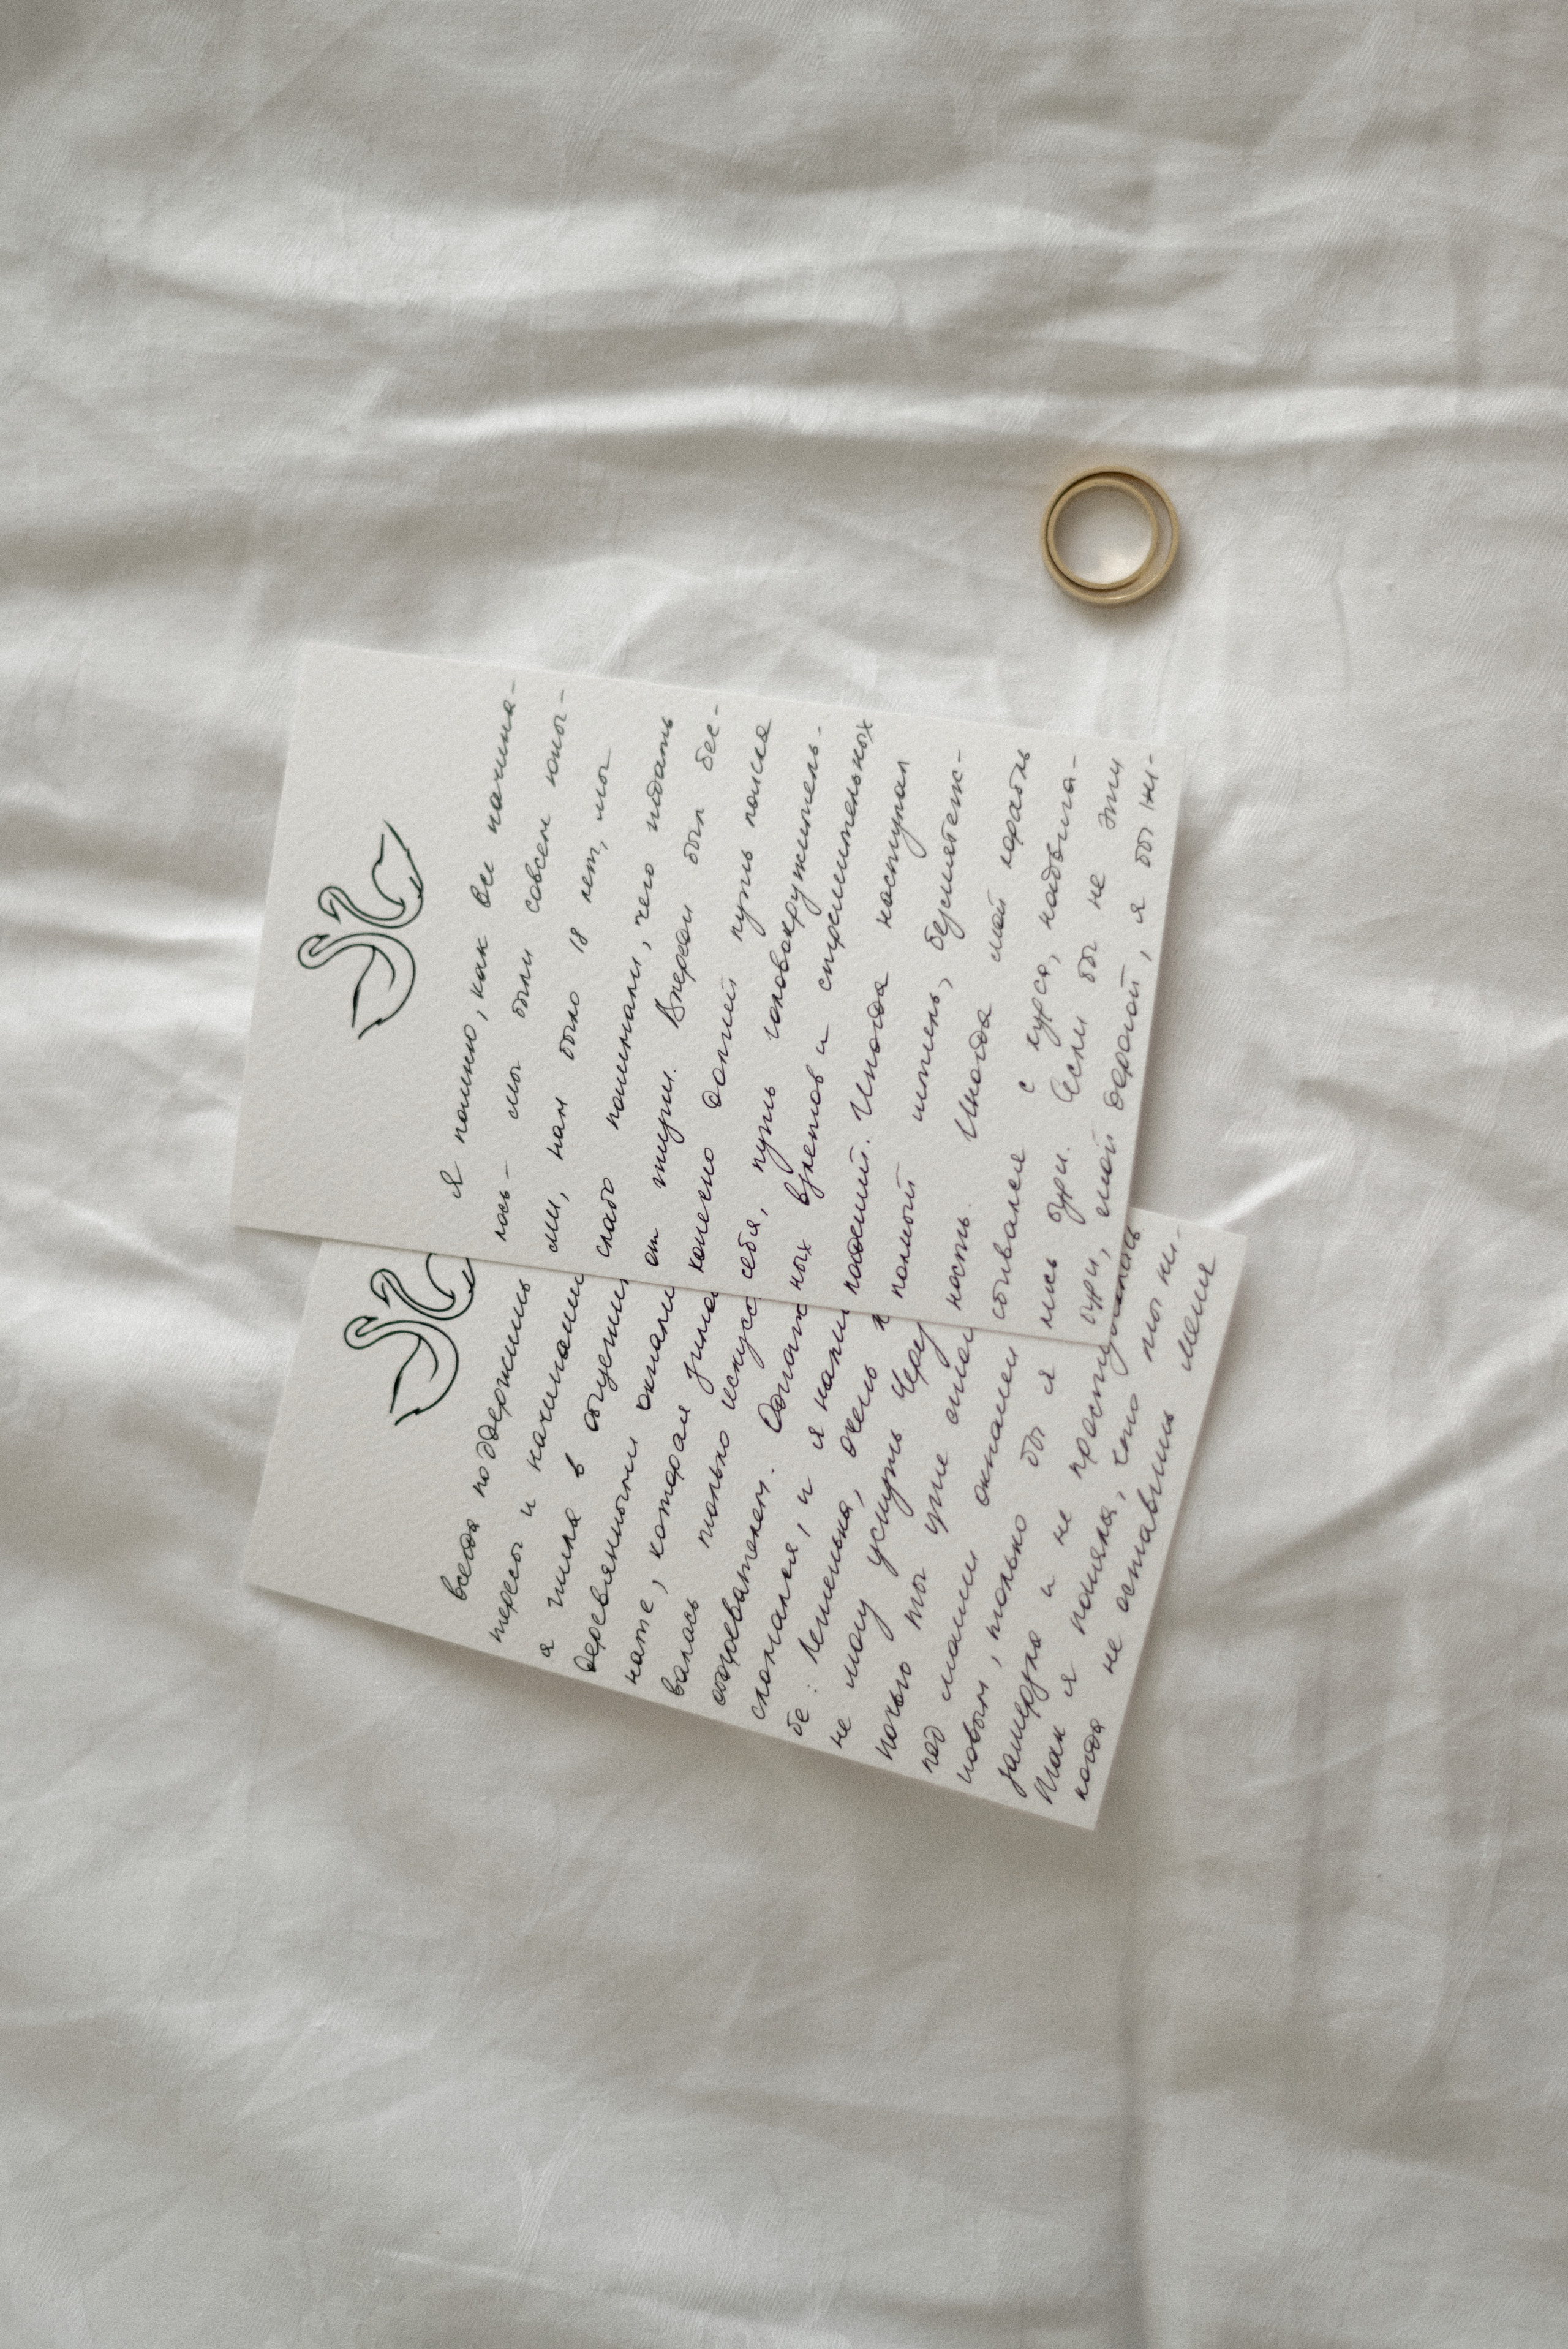 Я помню, как все начина-
лось – мы были совсем юны-
ми, нам было 18 лет, мы
слабо понимали, чего ждать
от жизни. Впереди был бес-
конечно долгий путь поиска
себя, путь головокружитель-
ных взлетов и стремительных
падений. Иногда наступал
полный штиль, безмятеж-
ность. Иногда мой корабль
сбивался с курса, надвига-
лись бури. Если бы не эти
бури, мой дорогой, я бы ни-
всегда поддержишь
терелы и начинании
я жила в общежи
деревянными окнами
нате, которая зимо
валась только искусс
обогревателем. Однаж
сломался, и я напи
бе: Лёшенька, очень
не могу уснуть. Чере
ночью ты уже
под моими окнами
новым, только бы я
замерзла и не простудилась
Так я поняла, что ты ни-
когда не оставишь меня